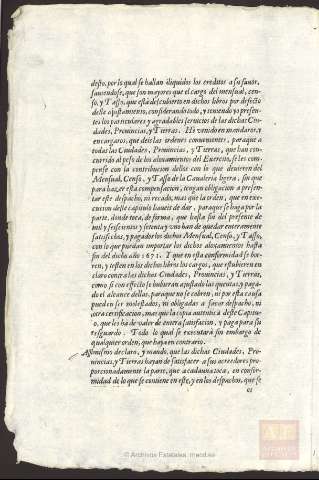 desto, por lo qual se hallan iliquidos los creditos a su fauor,
que son mayores que el cargo del mensual, cen-
so, y Tasso, que està descubierto en dichos libros por defecto
deste ajustamento, considerando todo, y teniendo presen-
tes los particulares y agradables servicios de las dichas Ciu-
dades, Prouincias, y Tierras. Hè venido en mandaros, y
encargaros, que deis las ordenes conuenientes, paraque a
todas las Ciudades, Prouincias, y Tierras, que han con-
currido al peso de los aloxamientos del Exercito, se les com-
pense con la contribucion dellos con lo que deuieren del
Mensual, Censo, y Tasso de la Caualleria ligera, sin que
para hazer esta compensacion, tengan obligacion a presen-
tar este despacho, ni recado, mas que la orden, que en exe-
cucion deste capitulo haueis de dar, paraque se haga por la
parte, donde toca, de forma, que hasta fin del presente de
mil y seiscientos y setenta y uno han de quedar enteramente
satisfechos, y pagados los dichos Mensual, Censo, y Tasso,
con lo que puedan importar los dichos aloxamientos hasta
fin del dicho año 1671. Y que en esta conformidad se bo-
rren, y testen en los dichos libros los cargos, que estuuieren en
claro contra las dichas Ciudades, Prouincias, y Tierras,
como si con efecto se huuieran ajustado las quentas, y paga-
do el alcance dellas, paraque no se cobren, ni por esta causa
pueden ser molestados, ni obligadas a sacar despacho, ni
otra certificacion, mas que la copia autentica deste Capitu-
lo, que les ha de valer de entera satisfacion, y paga para su
resguardo. Todo lo qual se executarà sin embargo de
qualquier orden, que haya en contrario.
Assimismo declaro, y mando, que las dichas Ciudades, Pro-
uincias, y Tierras hayan de satisfacer a sus acreedores pro-
porcionadamente la parte, que a cada una toca, en confor-
midad de lo que se contiene en este, y en los despachos, que se
os
© Archivos Estatales, mecd.es